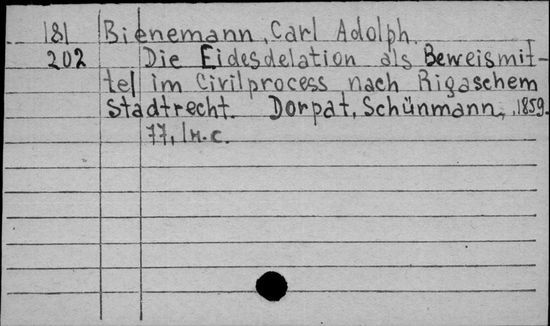 181 Bienemann, Carl Adolph.
202 Die Eidesdelation als Beweismit-
tel im Civilprocess nach Rigaschem
Stadtrecht. Dorpat, Schünmann, 1859.
77, 1 н.с.